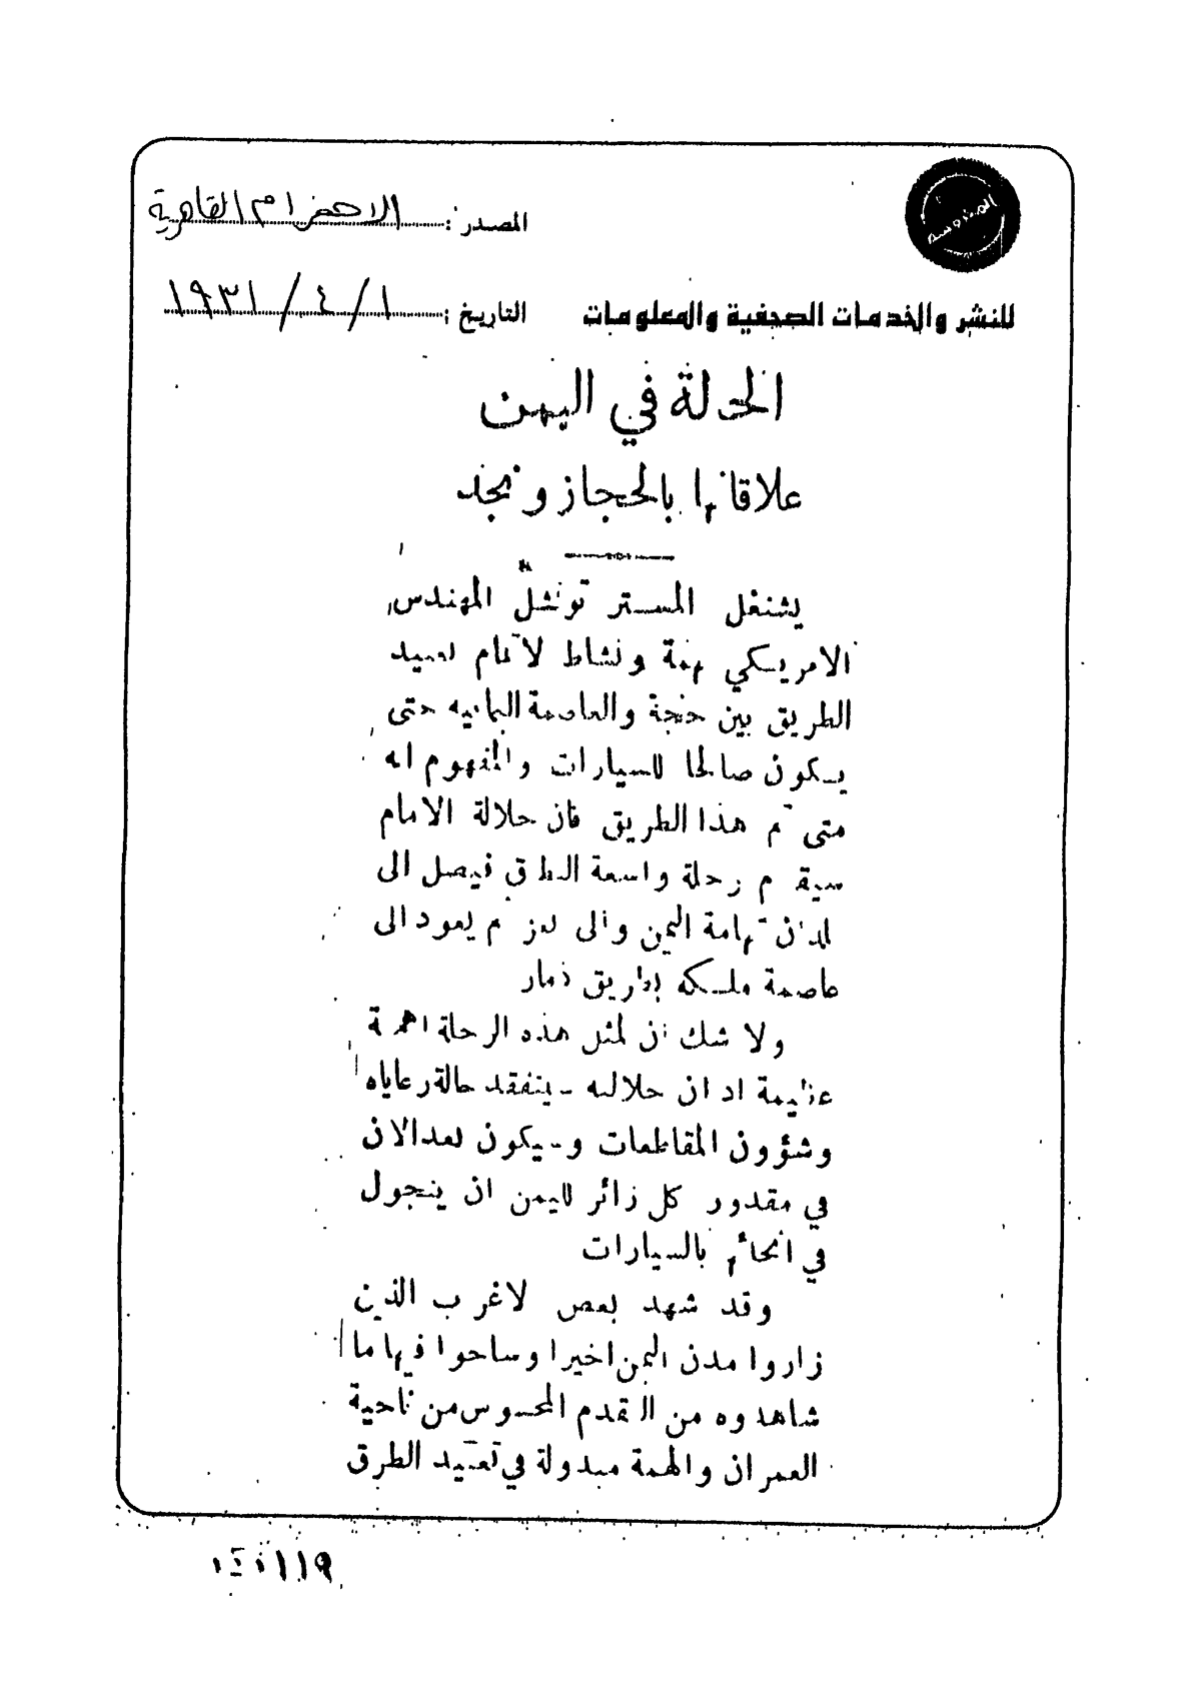 المصدر: الاهرام القاهرية
للنشر والخدمات الصحفية والمعلومات
التاريخ: ١/٤/١٩٣١
الحالة في اليمن
علاقاتها بالحجاز ونجد
يشتغل المستر توتشل المهندس
الامريكي بهمة ونشاط لاتمام تعبيد
الطريق بين والعاصمة اليمانيه حتى
يكون صالحا للسيارات والمفهوم انه
متى تم هذا الطريق فان جلالة الامام
سيقوم برحلة واسعة النطاق فيصل الى
تهامة اليمن والى تعز ثم يعود الى
عاصمة ملكه بطريق ذمار
ولا شك ان لمثل هذه الرحلة اهمية
عظيمة اذ ان جلالته سيتفقد حالة رعاياه
وشؤون المقاطعات وسيكون بعد الان
في مقدور كل زائر لليمن ان يتجول
في انحائها بالسيارات
وقد شهد بعض الاغراب الذين
زاروا مدن اليمن اخيرا وساحوا فيها ما
شاهدوه من التقدم المحسوس من ناحية
العمران والهمة مبذولة في تعبيد الطرق